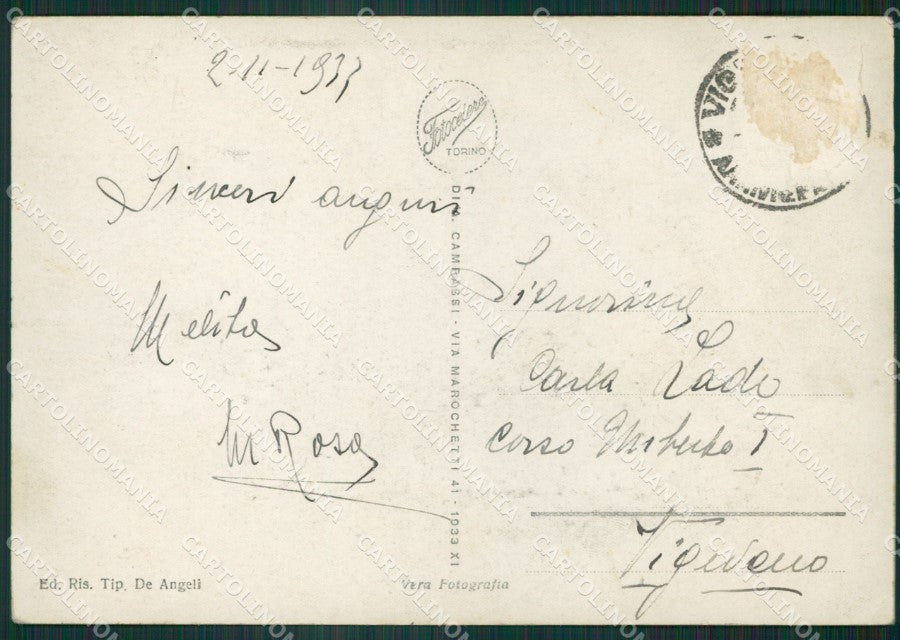 2-11-1933
Sinceri auguri
Melita
M Rosa
Fotocelere
TORINO
DIT. CAMPASSI - VIA MAROCHETTI 41 - 1933 XI
Signorina
Carla Lado
Corso Umberto I
Vigevano
Ed. Ris. Tip. De Angeli
Vera Fotografia
CARTOLINOMANIA